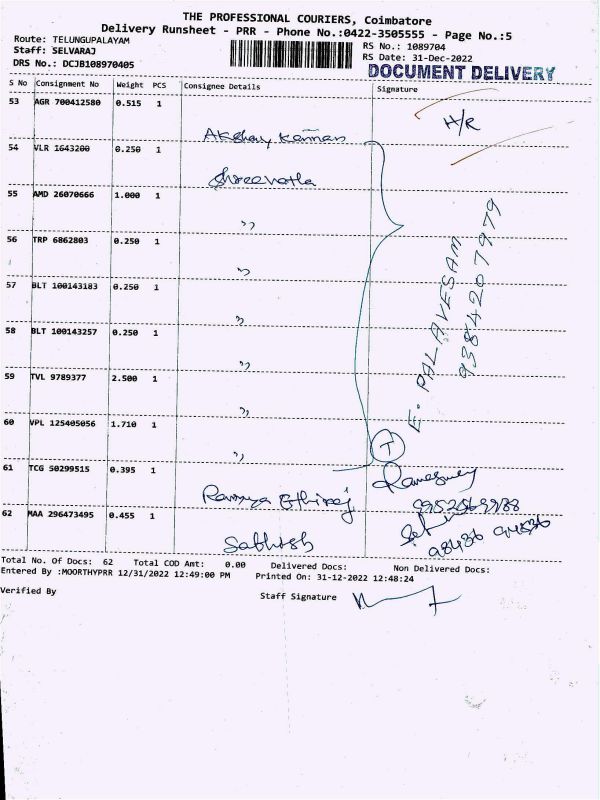 THE PROFESSIONAL COURIERS, Coimbatore
Delivery Runsheet - PRR - Phone No.:0422-3505555 - Page No.:5
Route: TELUNGUPALAYAM
Staff: SELVARAJ
DRS No.: DCJB108970405
RS No.: 1089704
RS Date: 31-Dec-2022
DOCUMENT DELIVERY
S No Consignment No Weight PCS Consignee Details Signature
53 AGR 700412580 0.515 1
Akshay Kannan H/R
54 VLR 1643200 0.250 1
55 AMD 26070666 1.000 1
"
56 TRP 6862803 0.250 1
"
57 BLT 100143183 0.250 1
"
58 BLT 100143257 0.250 1
"
59 TVL 9789377 2.500 1
"
60 VPL 125405056 1.710 1
"
E. PALAVESAM
9384207979
T
61 TCG 50299515 0.395 1
Ramya Ethiraj
62 MAA 296473495 0.455 1
Sathish
Total No. Of Docs: 62 Total COD Amt: 0.00 Delivered Docs: Non Delivered Docs:
Entered By :MOORTHYPRR 12/31/2022 12:49:00 PM Printed On: 31-12-2022 12:48:24
Verified By Staff Signature